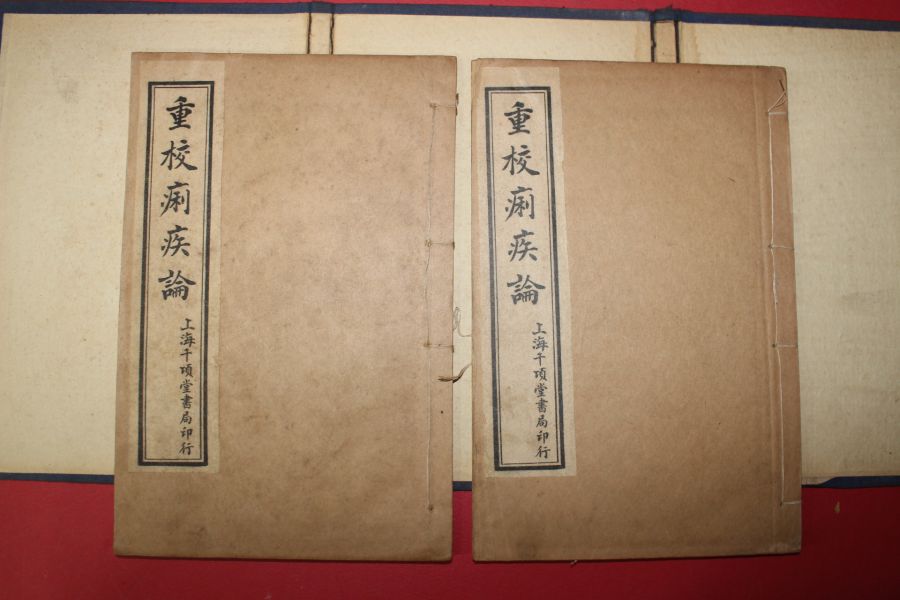 重校痢疾論
上海千頃堂書局印行
重校痢疾論
上海千頃堂書局印行